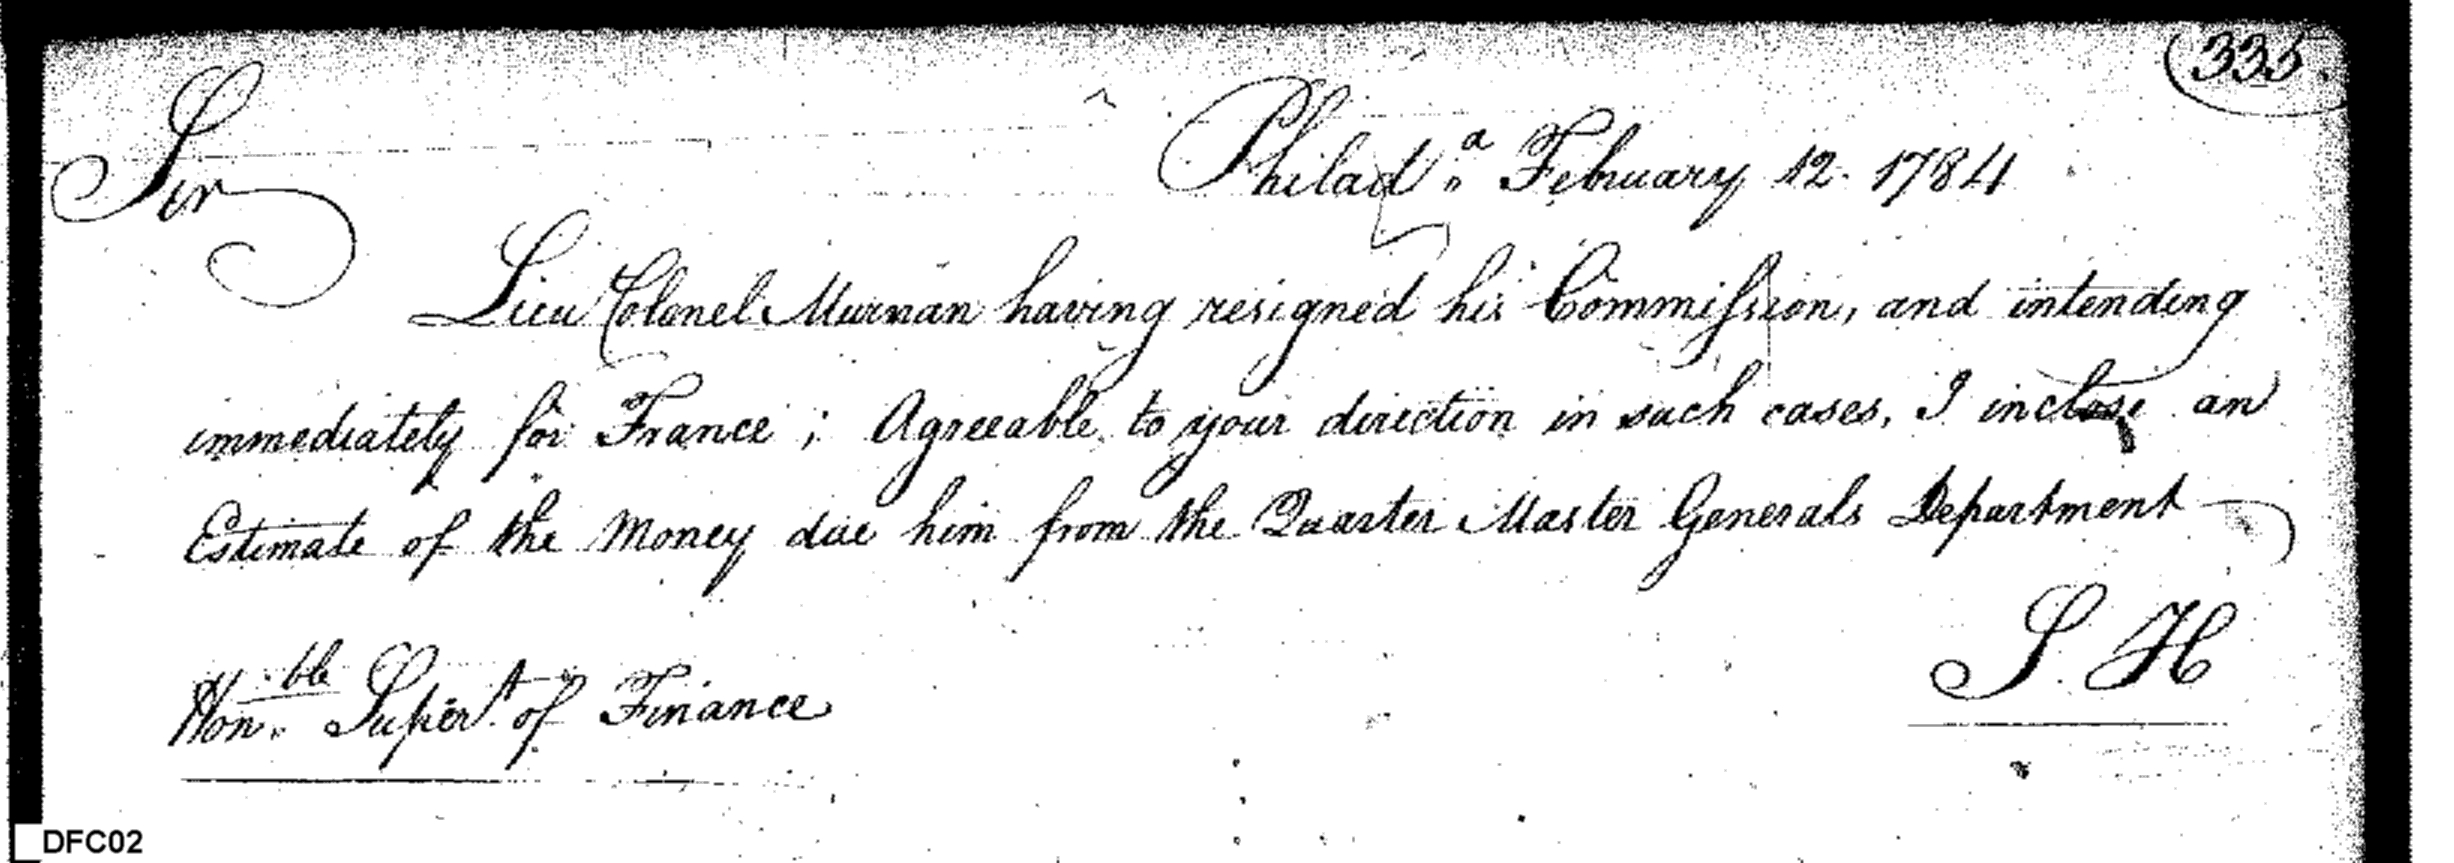 335.
Sir
Philad.ª February 12. 1784
Lieu Colonel Murnan having resigned his Commission, and intending
immediately for France; Agreeable to your direction in such cases, I inclose an
Estimate of the Money due him from the Quarter Master Generals Department
S. H
Hon.ble Super.t of Finance
DFC02